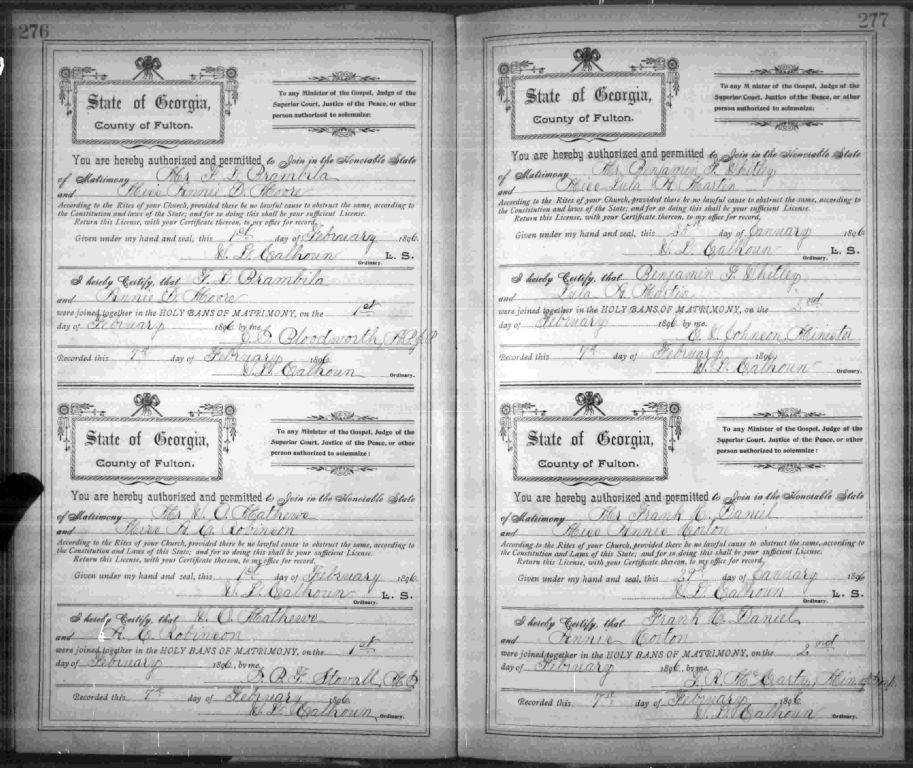 276
State of Georgia,
County of Fulton.
To any Minister of the Gospel, Judge of the
Superior Court, Justice of the Peace, or other
person authorized to solemnize:
You are hereby authorized and permitted to Join in the Honorable State
of Matrimony Mr F. L. Brambila
and Miss Annie D. Moore
According to the Rites of your Church, provided there be no lawful cause to obstruct the same, according to
the Constitution and laws of the State; and for so doing this shall be your sufficient License.
Return this License, with your Certificate thereon, to my office for record.
Given under my hand and seal, this 1st day of February 1896.
W. L. Calhoun L. S.
Ordinary.
I hereby Certify, that F. L. Brambila
and Annie D. Moore
were joined together in the HOLY BANS OF MATRIMONY, on the 1st
day of February 1896 by me.
Bloodworth,
Recorded this 7th day of February 1896
W. L. Calhoun
Ordinary.
State of Georgia,
County of Fulton.
To any Minister of the Gospel, Judge of the
Superior Court, Justice of the Peace, or other
person authorized to solemnize:
You are hereby authorized and permitted to Join in the Honorable State
of Matrimony Mr W. O. Mathews
and Miss R. E. Robinson
According to the Rites of your Church, provided there be no lawful cause to obstruct the same, according to
the Constitution and Laws of this State; and for so doing this shall be your sufficient License.
Return this License, with your Certificate thereon, to my office for record.
Given under my hand and seal, this 1st day of February 1896
W. L. Calhoun L. S.
Ordinary.
I hereby Certify, that W. O. Mathews
and R. E. Robinson
were joined together in the HOLY BANS OF MATRIMONY, on the 1st
day of February 1896, by me.
Stovall,
Recorded this 7th day of February 1896
W. L. Calhoun
Ordinary.
277
State of Georgia,
County of Fulton.
To any Minister of the Gospel, Judge of the
Superior Court, Justice of the Peace, or other
person authorized to solemnize:
You are hereby authorized and permitted to Join in the Honorable State
of Matrimony Mr. Benjamin F. Whitley
and Miss Lula A. Martin
According to the Rites of your Church, provided there be no lawful cause to obstruct the same, according to
the Constitution and laws of the State; and for so doing this shall be your sufficient License.
Return this License, with your Certificate thereon, to my office for record.
Given under my hand and seal, this day of January 1896
W. L. Calhoun L. S.
Ordinary.
I hereby Certify, that Benjamin F. Whitley
and Lula A. Martin
were joined together in the HOLY BANS OF MATRIMONY, on the 2nd
day of February 1896 by me.
Johnson, Minister
Recorded this 7th day of February 1896
W. L. Calhoun
Ordinary.
State of Georgia,
County of Fulton.
To any Minister of the Gospel, Judge of the
Superior Court, Justice of the Peace, or other
person authorized to solemnize:
You are hereby authorized and permitted to Join in the Honorable State
of Matrimony Mr Frank C. Daniel
and Miss Annie Corton
According to the Rites of your Church, provided there be no lawful cause to obstruct the same, according to
the Constitution and Laws of this State; and for so doing this shall be your sufficient License.
Return this License, with your Certificate thereon, to my office for record.
Given under my hand and seal, this 29th day of January 1896
W. L. Calhoun L. S.
Ordinary.
I hereby Certify, that Frank C. Daniel
and Annie Corton
were joined together in the HOLY BANS OF MATRIMONY, on the 2nd
day of February 1896, by me.
J. R. McCarty,
Recorded this 7th day of February 1896
W. L. Calhoun
Ordinary.